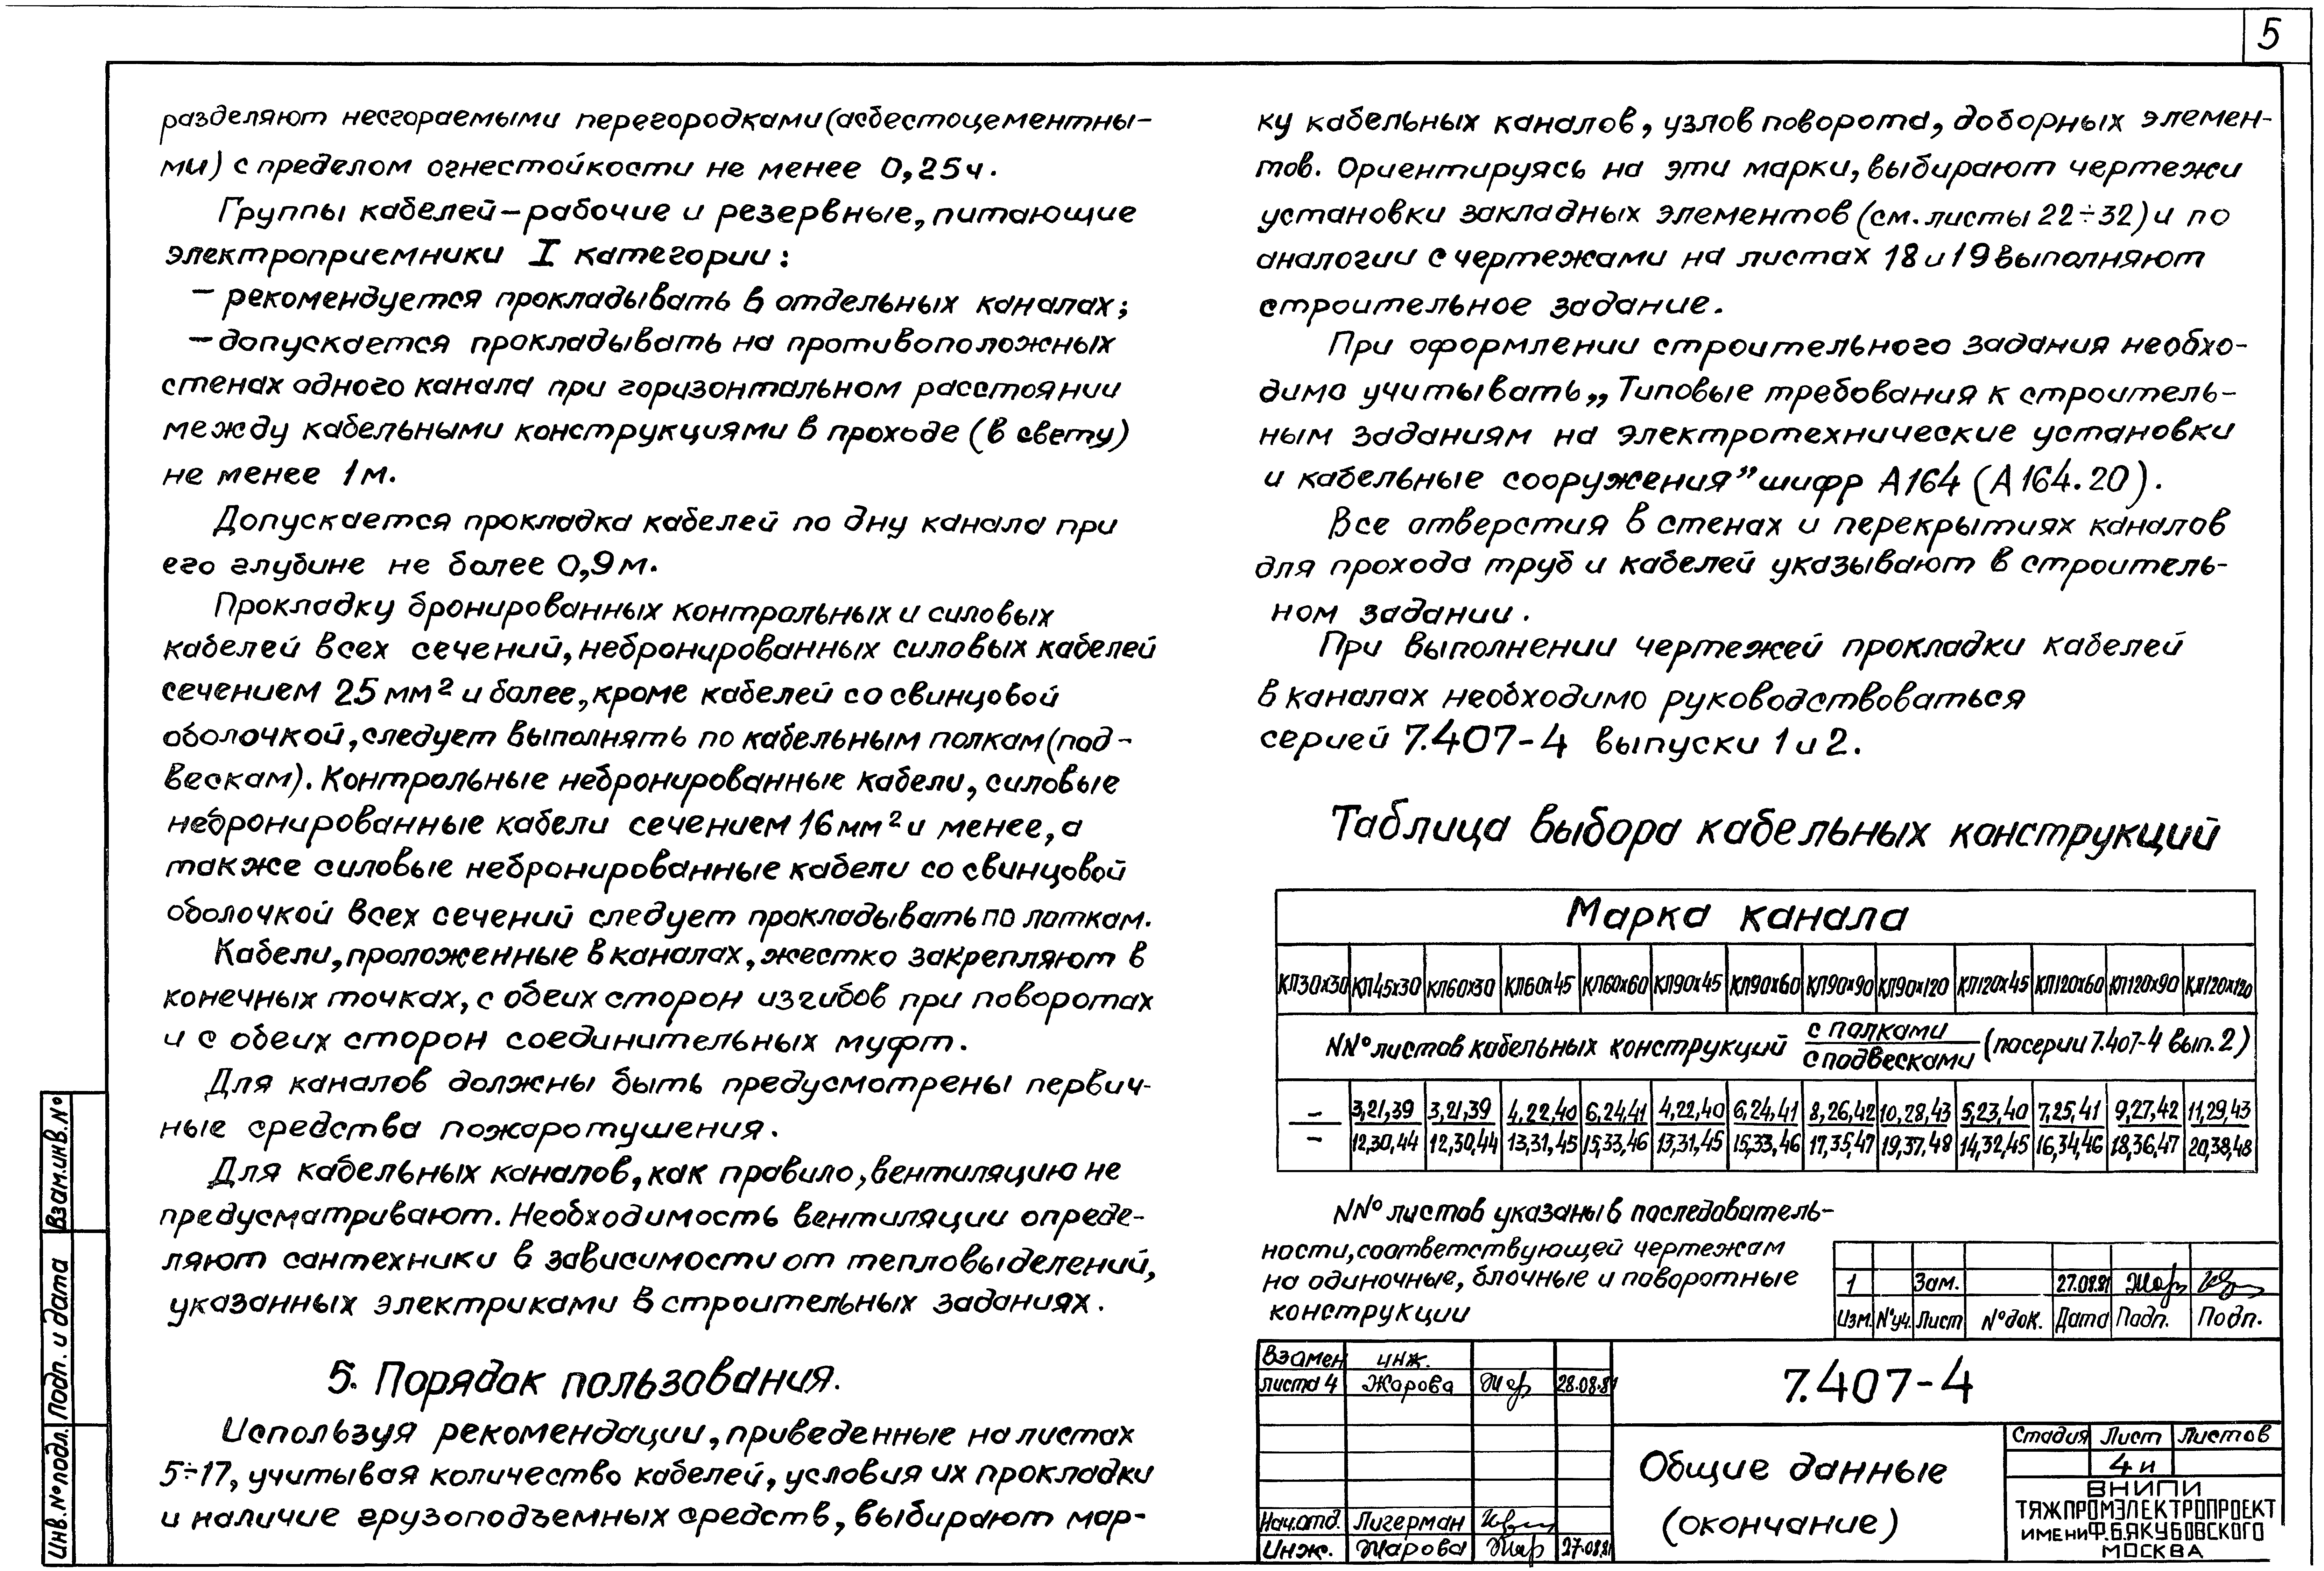 5
разделяют несгораемыми перегородками (асбестоцементны-
ми) с пределом огнестойкости не менее 0,25 ч.
Группы кабелей – рабочие и резервные, питающие
электроприемники I категории:
– рекомендуется прокладывать в отдельных каналах;
– допускается прокладывать на противоположных
стенах одного канала при горизонтальном расстоянии
между кабельными конструкциями в проходе (в свету)
не менее 1 м.
Допускается прокладка кабелей по дну канала при
его глубине не более 0,9 м.
Прокладку бронированных контрольных и силовых
кабелей всех сечений, небронированных силовых кабелей
сечением 25 мм² и более, кроме кабелей со свинцовой
оболочкой, следует выполнять по кабельным полкам (под-
вескам). Контрольные небронированные кабели, силовые
небронированные кабели сечением 16 мм² и менее, а
также силовые небронированные кабели со свинцовой
оболочкой всех сечений следует прокладывать по лоткам.
Кабели, проложенные в каналах, жестко закрепляют в
конечных точках, с обеих сторон изгибов при поворотах
и с обеих сторон соединительных муфт.
Для каналов должны быть предусмотрены первич-
ные средства пожаротушения.
Для кабельных каналов, как правило, вентиляцию не
предусматривают. Необходимость вентиляции опреде-
ляют сантехники в зависимости от тепловыделений,
указанных электриками в строительных заданиях.
5. Порядок пользования.
Используя рекомендации, приведенные на листах
5÷17, учитывая количество кабелей, условия их прокладки
и наличие грузоподъемных средств, выбирают мар-
ку кабельных каналов, узлов поворота, доборных элемен-
тов. Ориентируясь на эти марки, выбирают чертежи
установки закладных элементов (см. листы 22÷32) и по
аналогии с чертежами на листах 18 и 19 выполняют
строительное задание.
При оформлении строительного задания необхо-
димо учитывать „Типовые требования к строитель-
ным заданиям на электротехнические установки
и кабельные сооружения” шифр А164 (А164.20).
Все отверстия в стенах и перекрытиях каналов
для прохода труб и кабелей указывают в строитель-
ном задании.
При выполнении чертежей прокладки кабелей
в каналах необходимо руководствоваться
серией 7.407-4 выпуски 1 и 2.
Таблица выбора кабельных конструкций
Марка канала
КП30х30 КП45х30 КП60х30 КП60х45 КП60х60 КП90х45 КП90х60 КП90х90 КП90х120 КП120х45 КП120х60 КП120х90 КП120х120
NN° листов кабельных конструкций с полками / с подвесками (по серии 7.407-4 вып. 2)
– 3,21,39 3,21,39 4,22,40 6,24,41 4,22,40 6,24,41 8,26,42 10,28,43 5,23,40 7,25,41 9,27,42 11,29,43
– 12,30,44 12,30,44 13,31,45 15,33,46 13,31,45 15,33,46 17,35,47 19,37,48 14,32,45 16,34,46 18,36,47 20,38,48
NN° листов указаны в последователь-
ности, соответствующей чертежам
на одиночные, блочные и поворотные
конструкции
1 Зам. 27.08.81
Изм. N°уч. Лист N°док. Дата Подп. Подп.
Взамен инж.
листа 4 Жарова 28.08.81
Нач.отд. Лигерман
Инж. Жарова 27.08.81
7.407-4
Общие данные
(окончание)
Стадия Лист Листов
4и
ВНИПИ
ТЯЖПРОМЭЛЕКТРОПРОЕКТ
ИМЕНИ Ф.Б.ЯКУБОВСКОГО
МОСКВА
Взам.инв.N°
Подп. и дата
Инв.N°подл.